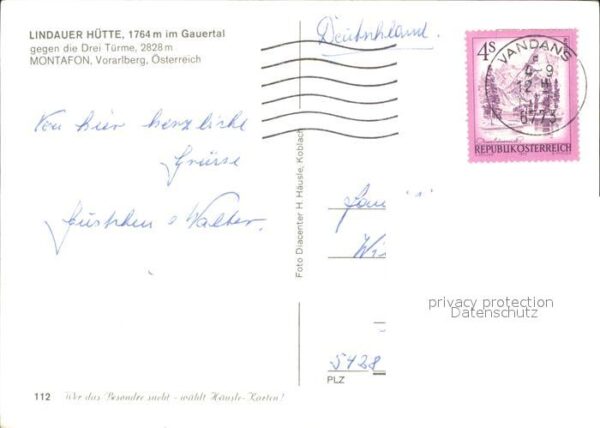 LINDAUER HÜTTE, 1764 m im Gauertal
gegen die Drei Türme, 2828 m
MONTAFON, Vorarlberg, Österreich
Deutschland.
4S
VANDANS
9
12
6773
REPUBLIK ÖSTERREICH
Von hier herzliche
Grüsse
Walter.
Foto Diacenter H. Häusle, Koblach
Fam
privacy protection
Datenschutz
5428
PLZ
112 Wer das Besondre sucht - wählt Häusle-Karten!